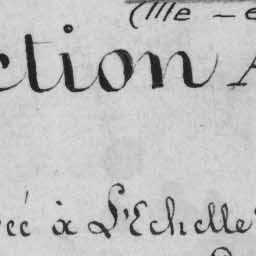 (IIIe - e
ction A
eé à L'Echelle